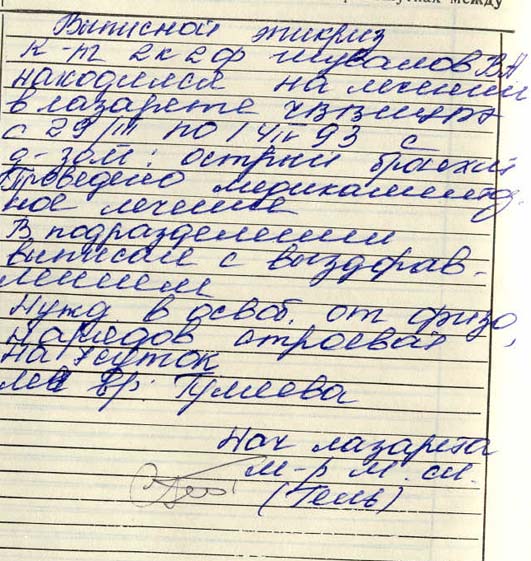 тках между
Выписной эпикриз
к-т 2к2ф Шувалов В.А
находился на лечении
в лазарете
с 29/III по 14/IV 93 с
д-зом: острый бронхит
Проведено медикаментоз.
ное лечение
В подразделении
выписан с выздорав-
лением
Нужд. в освоб. от физо,
нарядов строевых
на суток
леч вр:
Нач лазарета
м-р м. сл.
(Гель)